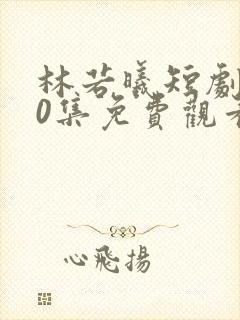 林若曦短劇
0集免費觀看
心飛揚